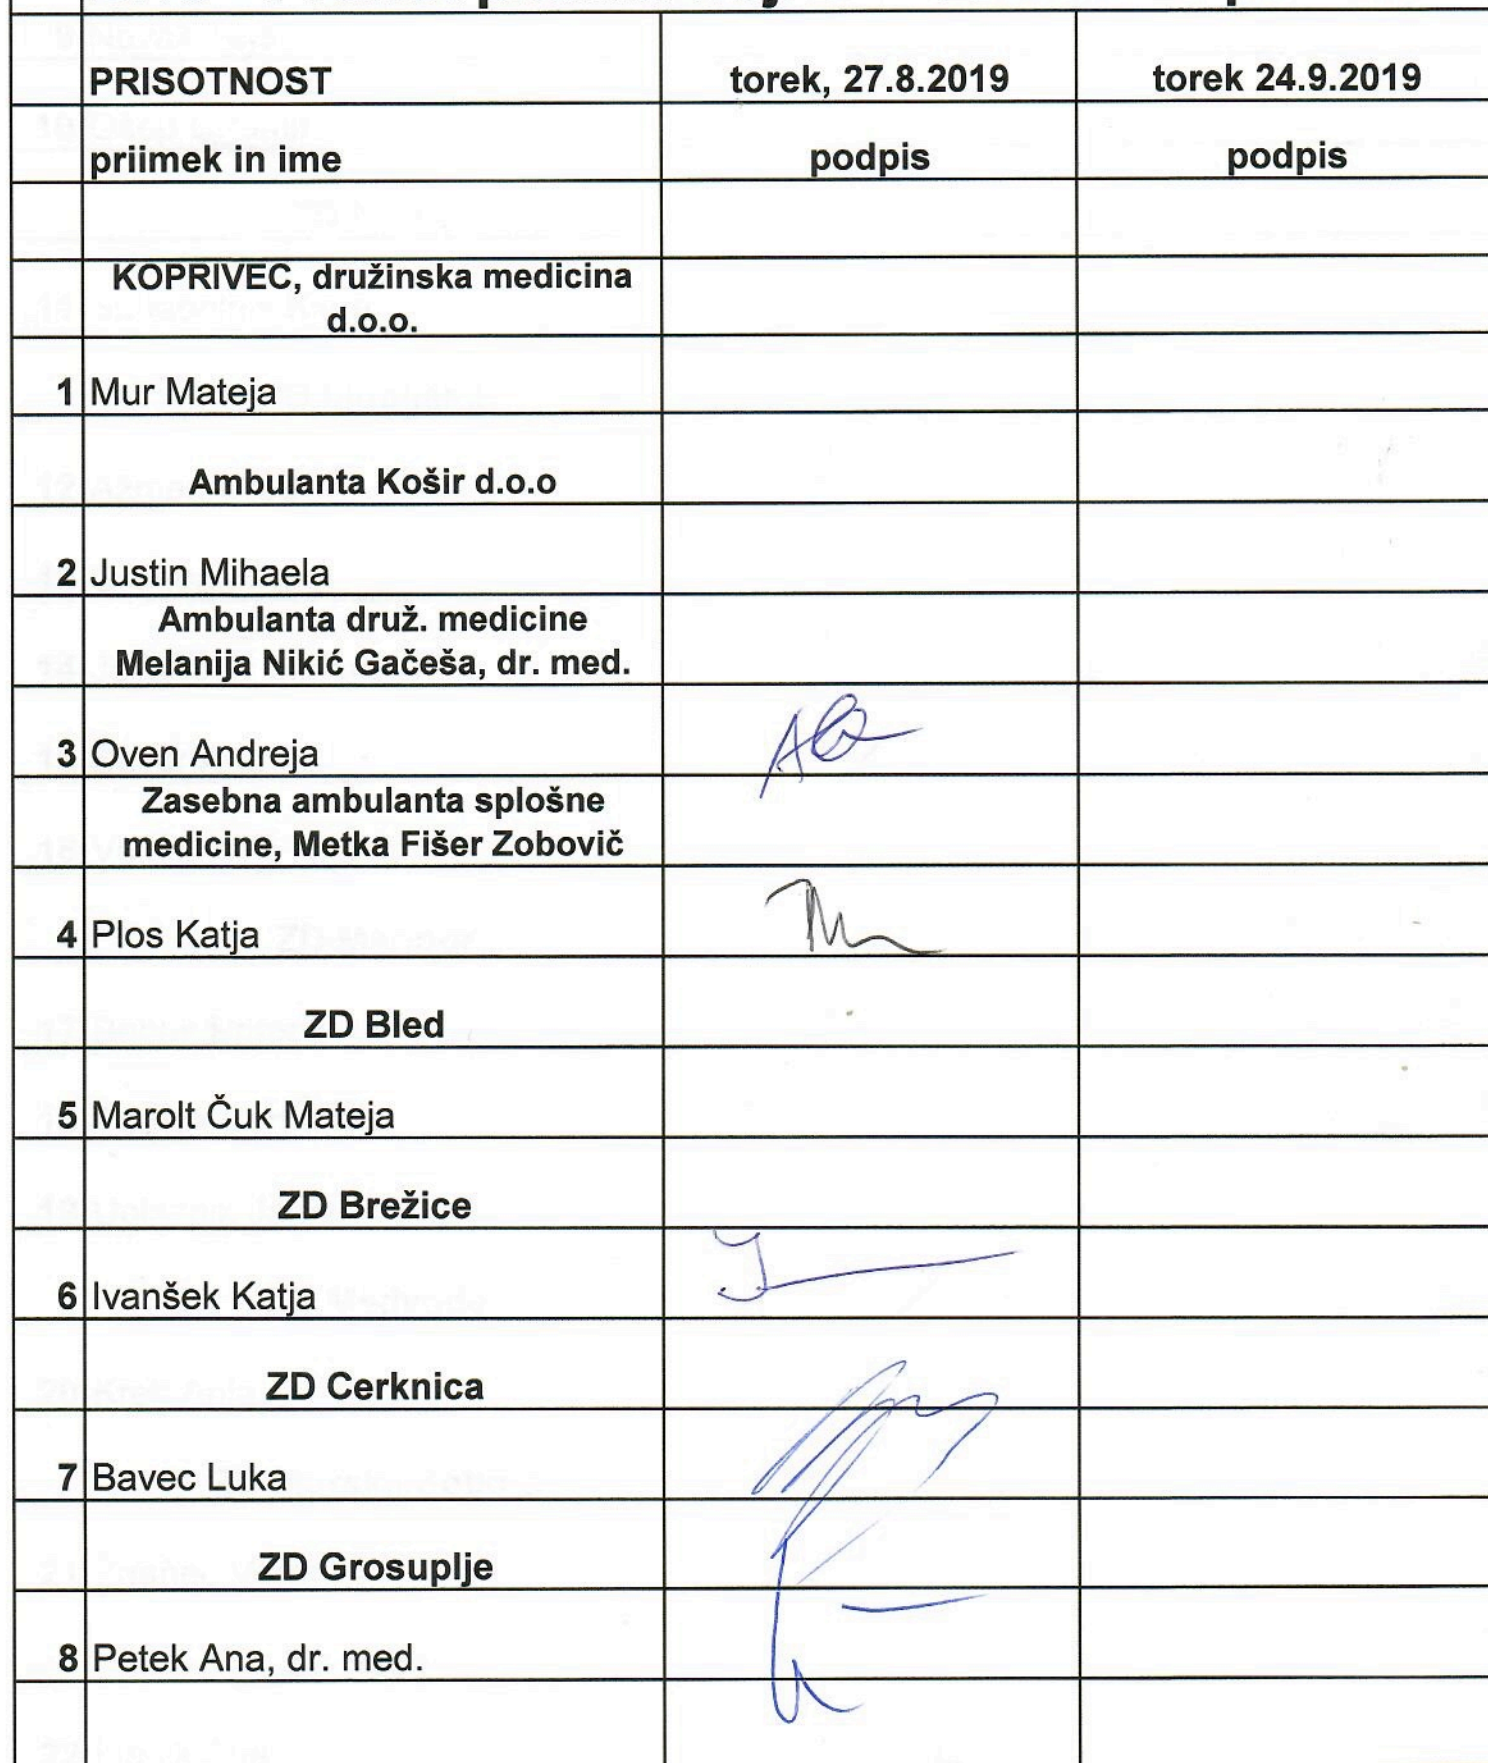 PRISOTNOST torek, 27.8.2019 torek 24.9.2019
priimek in ime podpis podpis
KOPRIVEC, družinska medicina
d.o.o.
1 Mur Mateja
Ambulanta Košir d.o.o
2 Justin Mihaela
Ambulanta druž. medicine
Melanija Nikić Gačeša, dr. med.
3 Oven Andreja
Zasebna ambulanta splošne
medicine, Metka Fišer Zobovič
4 Plos Katja
ZD Bled
5 Marolt Čuk Mateja
ZD Brežice
6 Ivanšek Katja
ZD Cerknica
7 Bavec Luka
ZD Grosuplje
8 Petek Ana, dr. med.